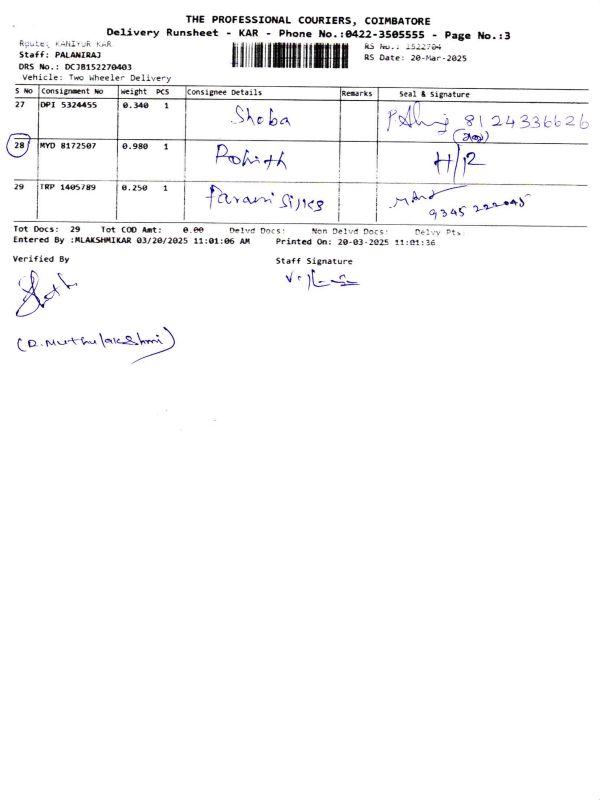 THE PROFESSIONAL COURIERS, COIMBATORE
Delivery Runsheet - KAR - Phone No.:0422-3505555 - Page No.:3
Route: KANIYUR KAR
RS No.: 1522704
Staff: PALANIRAJ
RS Date: 20-Mar-2025
DRS No.: DCJB152270403
Vehicle: Two Wheeler Delivery
S No Consignment No Weight PCS Consignee Details Remarks Seal & Signature
27 DPI 5324455 0.340 1 Shoba 8124336626
28 MYD 8172507 0.980 1 Rohith H/R
29 TRP 1405789 0.250 1 9345222045
Tot Docs: 29 Tot COD Amt: 0.00 Delvd Docs: Non Delvd Docs: Delvy Pts:
Entered By :MLAKSHMIKAR 03/20/2025 11:01:06 AM Printed On: 20-03-2025 11:01:36
Verified By Staff Signature
(D. Muthulakshmi)